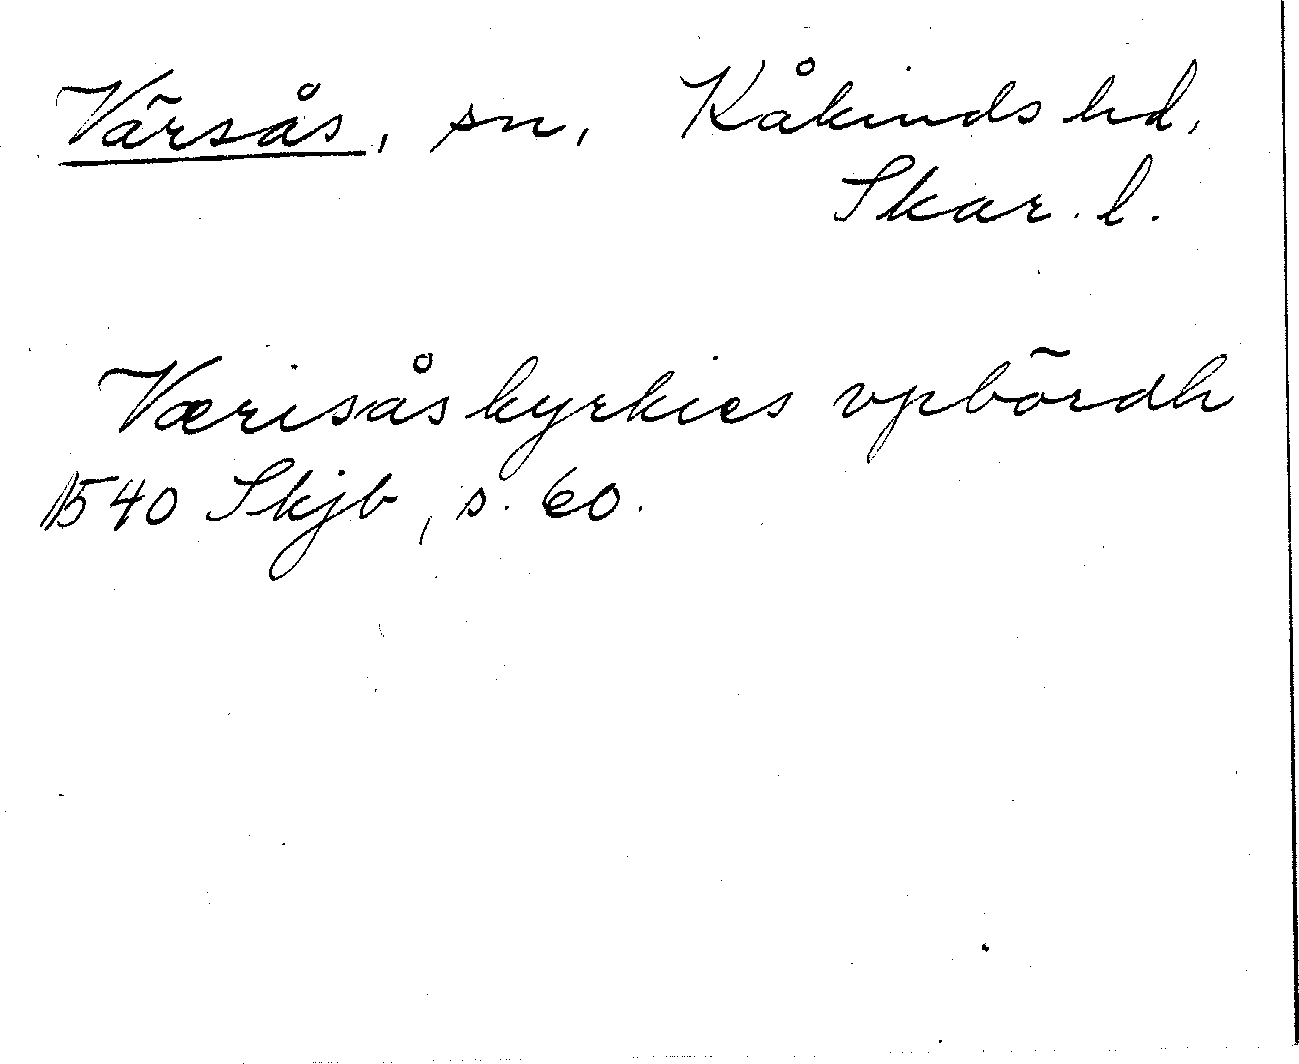 Värsås, sn, Kåkinds hd,
Skar. l.
Værisåskyrkies vpbördh
1540 Skjb, s. 60.